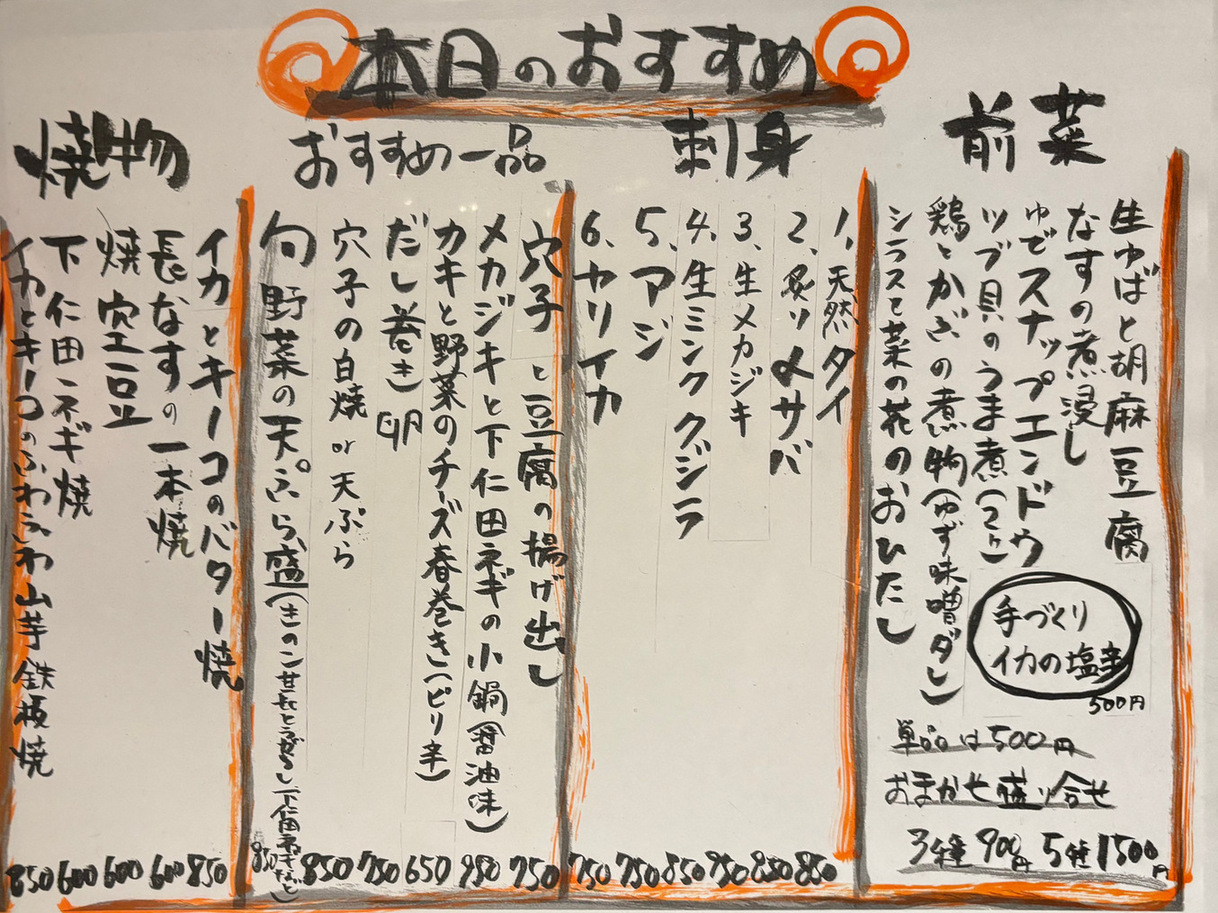 本日のおすすめ
前菜
生ゆばと胡麻豆腐
なすの煮浸し
ゆでスナップエンドウ
ツブ貝のうま煮(2ヶ)
鶏とかぶの煮物(ゆず味噌ダレ)
シラスと菜の花のおひたし
手づくり
イカの塩辛
500円
単品は500円
おまかせ盛り合せ
3種900円 5種1500円
刺身
1、天然タイ 850
2、炙り〆サバ 850
3、生メカジキ 950
4、生ミンククジラ 850
5、アジ 750
6、ヤリイカ 750
おすすめ一品
穴子と豆腐の揚げ出し 750
メカジキと下仁田ネギの小鍋(醤油味) 950
カキと野菜のチーズ春巻き(ピリ辛) 650
だし巻き卵 750
穴子の白焼or天ぷら 850
旬野菜の天ぷら盛(きのこ、甘長とうがらし、下仁田ネギなど) 850
焼物
イカとキノコのバター焼 850
長なすの一本焼 600
焼空豆 600
下仁田ネギ焼 600
イカとキノコのふわふわ山芋鉄板焼 850